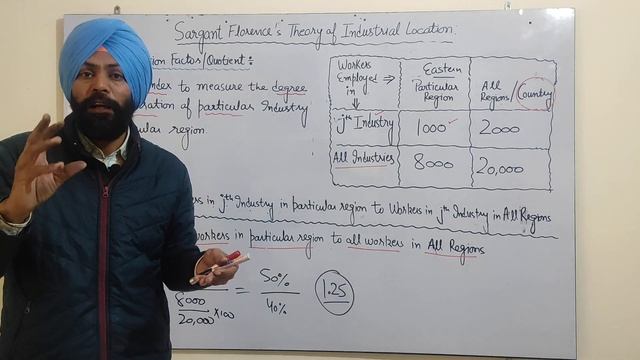 Sargant Florence's Theory of Industrial Location.
ion Factor/Quotient:
nder to measure the degree
ration of particular Industry
ular region.
Workers Employed in
Eastern Particular Region
All Regions/Country
jth Industry
1000
2000
All Industries
8000
20,000
ers in jth Industry in particular region to Workers in jth Industry in All Regions
workers in particular region to all workers in All Regions
8000
20,000 ×100
=
50%
40%
1.25